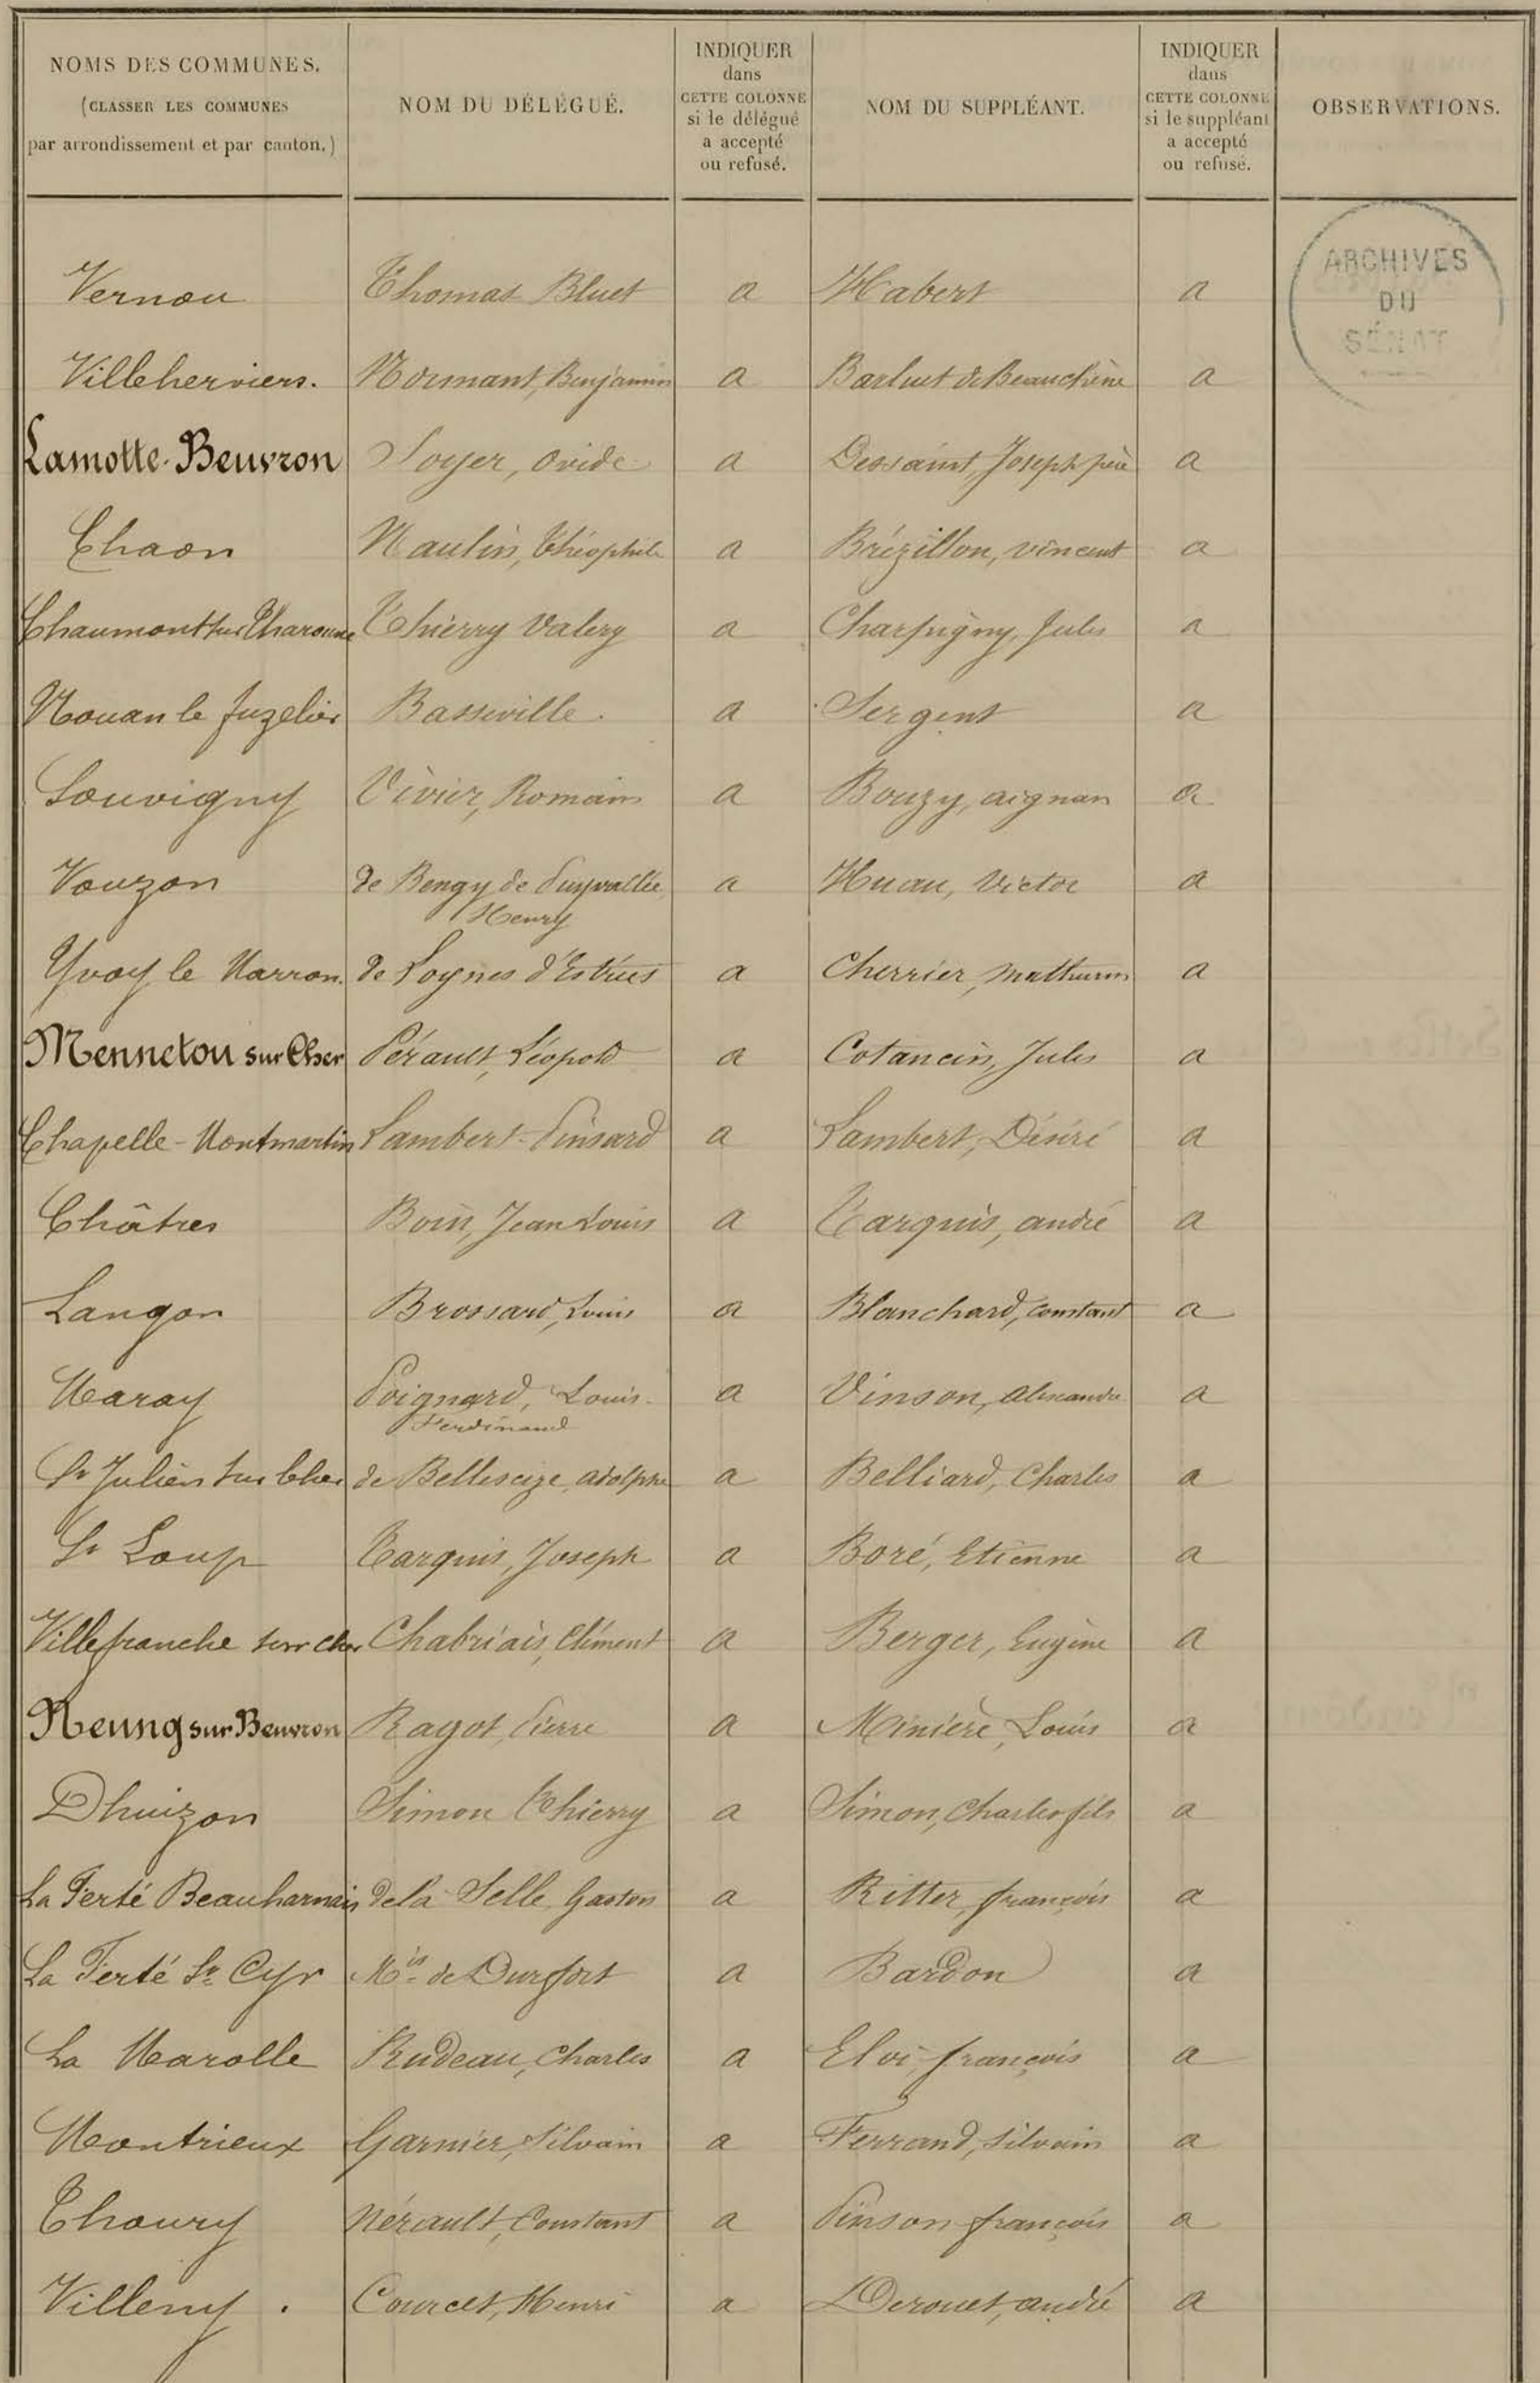 NOMS DES COMMUNES.
(CLASSER LES COMMUNES
par arrondissement et par canton.)
NOM DU DÉLÉGUÉ.
INDIQUER
dans
CETTE COLONNE
si le délégué
a accepté
ou refusé.
NOM DU SUPPLÉANT.
INDIQUER
dans
CETTE COLONNE
si le suppléant
a accepté
ou refusé.
OBSERVATIONS.
ARCHIVES
DU
SÉNAT
Vernou Thomas Bluet a Habert a
Villeherviers. Normant, Benjamin a Barluet de Beauchêne a
Lamotte-Beuvron Soyer, Ovide a Dessaint, Joseph père a
Chaon Naulin, Théophile a Brézillon, Vincent a
Chaumont sur Tharonne Thierry Valery a Charpigny, Jules a
Nouan le fuzelier Basseville. a Sergent a
Souvigny Vivier, Romain a Bouzy, aignan a
Vouzon de Bengy de Puyvallée a Huau, Victor a
Henry
Yvoy le Marron. de Loynes d'Estrées a Cherrier, Mathurin a
Mennetou sur Cher Pérault, Léopold a Cotancin, Jules a
Chapelle-Montmartin Lambert-Pinsard a Lambert, Désiré a
Châtres Boin, Jean Louis a Tarquis, andré a
Langon Brossard, Louis a Blanchard, Constant a
Maray Poignard, Louis- a Vinson, Alexandre a
Ferdinand
St Julien sur Cher de Bellescize, adolphe a Belliard, Charles a
St Loup Tarquis, Joseph a Boré, Etienne a
Villefranche sur Cher Chabriais, Clément a Berger, Eugène a
Neung sur Beuvron Ragot, Pierre a Minière, Louis a
Dhuizon Simon Thierry a Simon, Charles fils a
La Ferté Beauharnais de la Selle, Gaston a Ritter, françois a
La Ferté St Cyr Mis de Durfort a Bardon a
La Marolle Rudeau, Charles a Eloi, françois a
Montrieux Garnier, Silvain a Ferrand, Silvain a
Thoury Nérault, Constant a Pinson françois a
Villeny. Courcet, Henri a Derouet, andré a